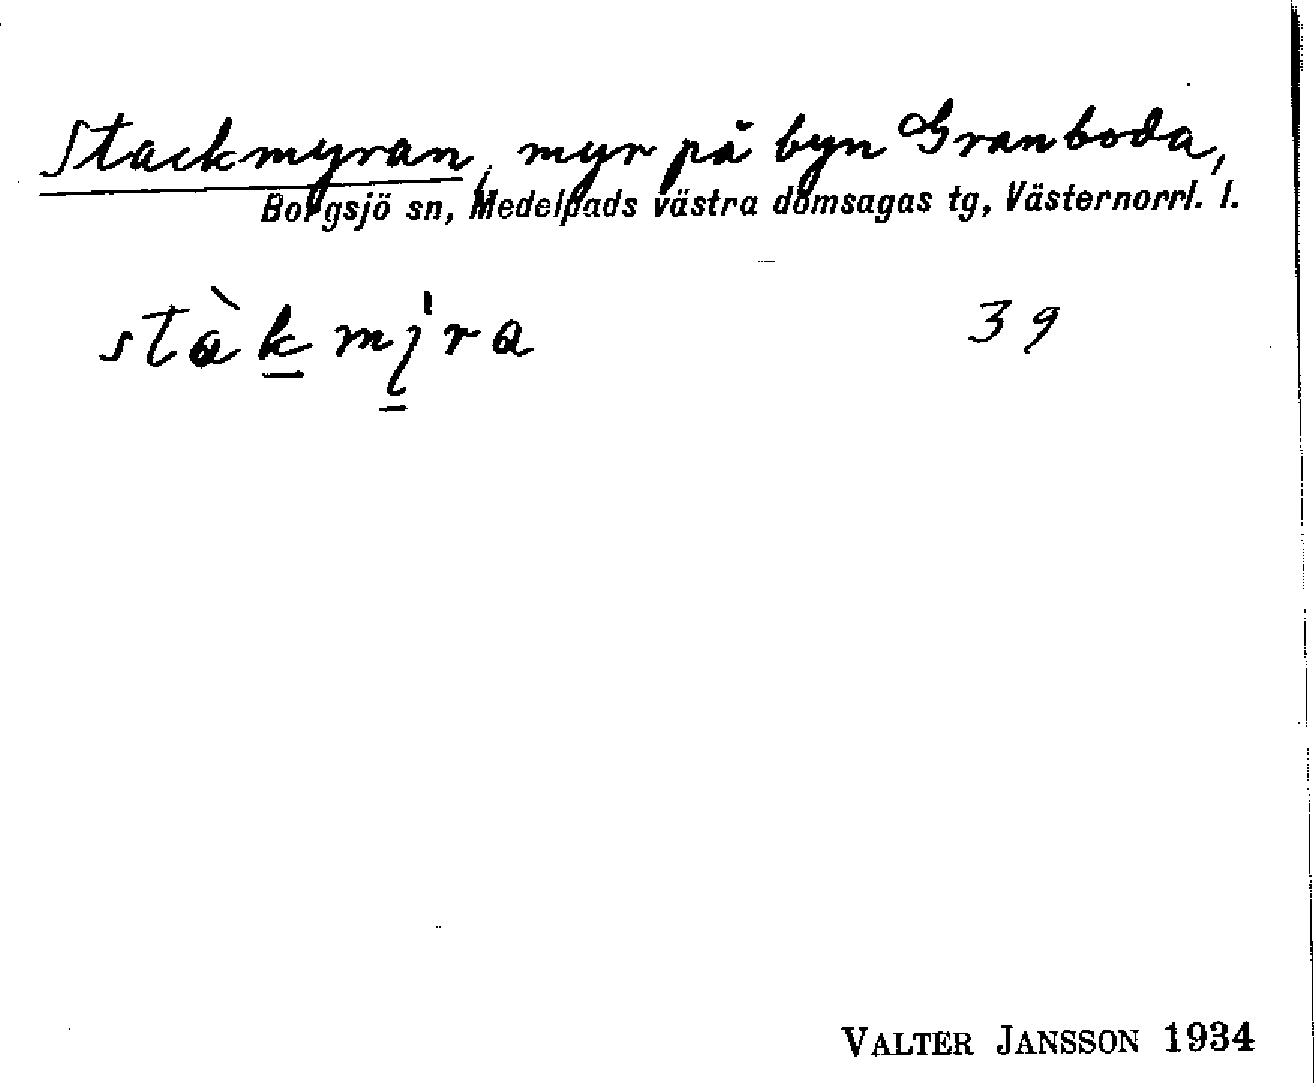 Stackmyran, myr på byn Granboda,
Borgsjö sn, Medelpads västra domsagas tg, Västernorrl. l.
stàk̲mı̨̲́ra 39
VALTER JANSSON 1934